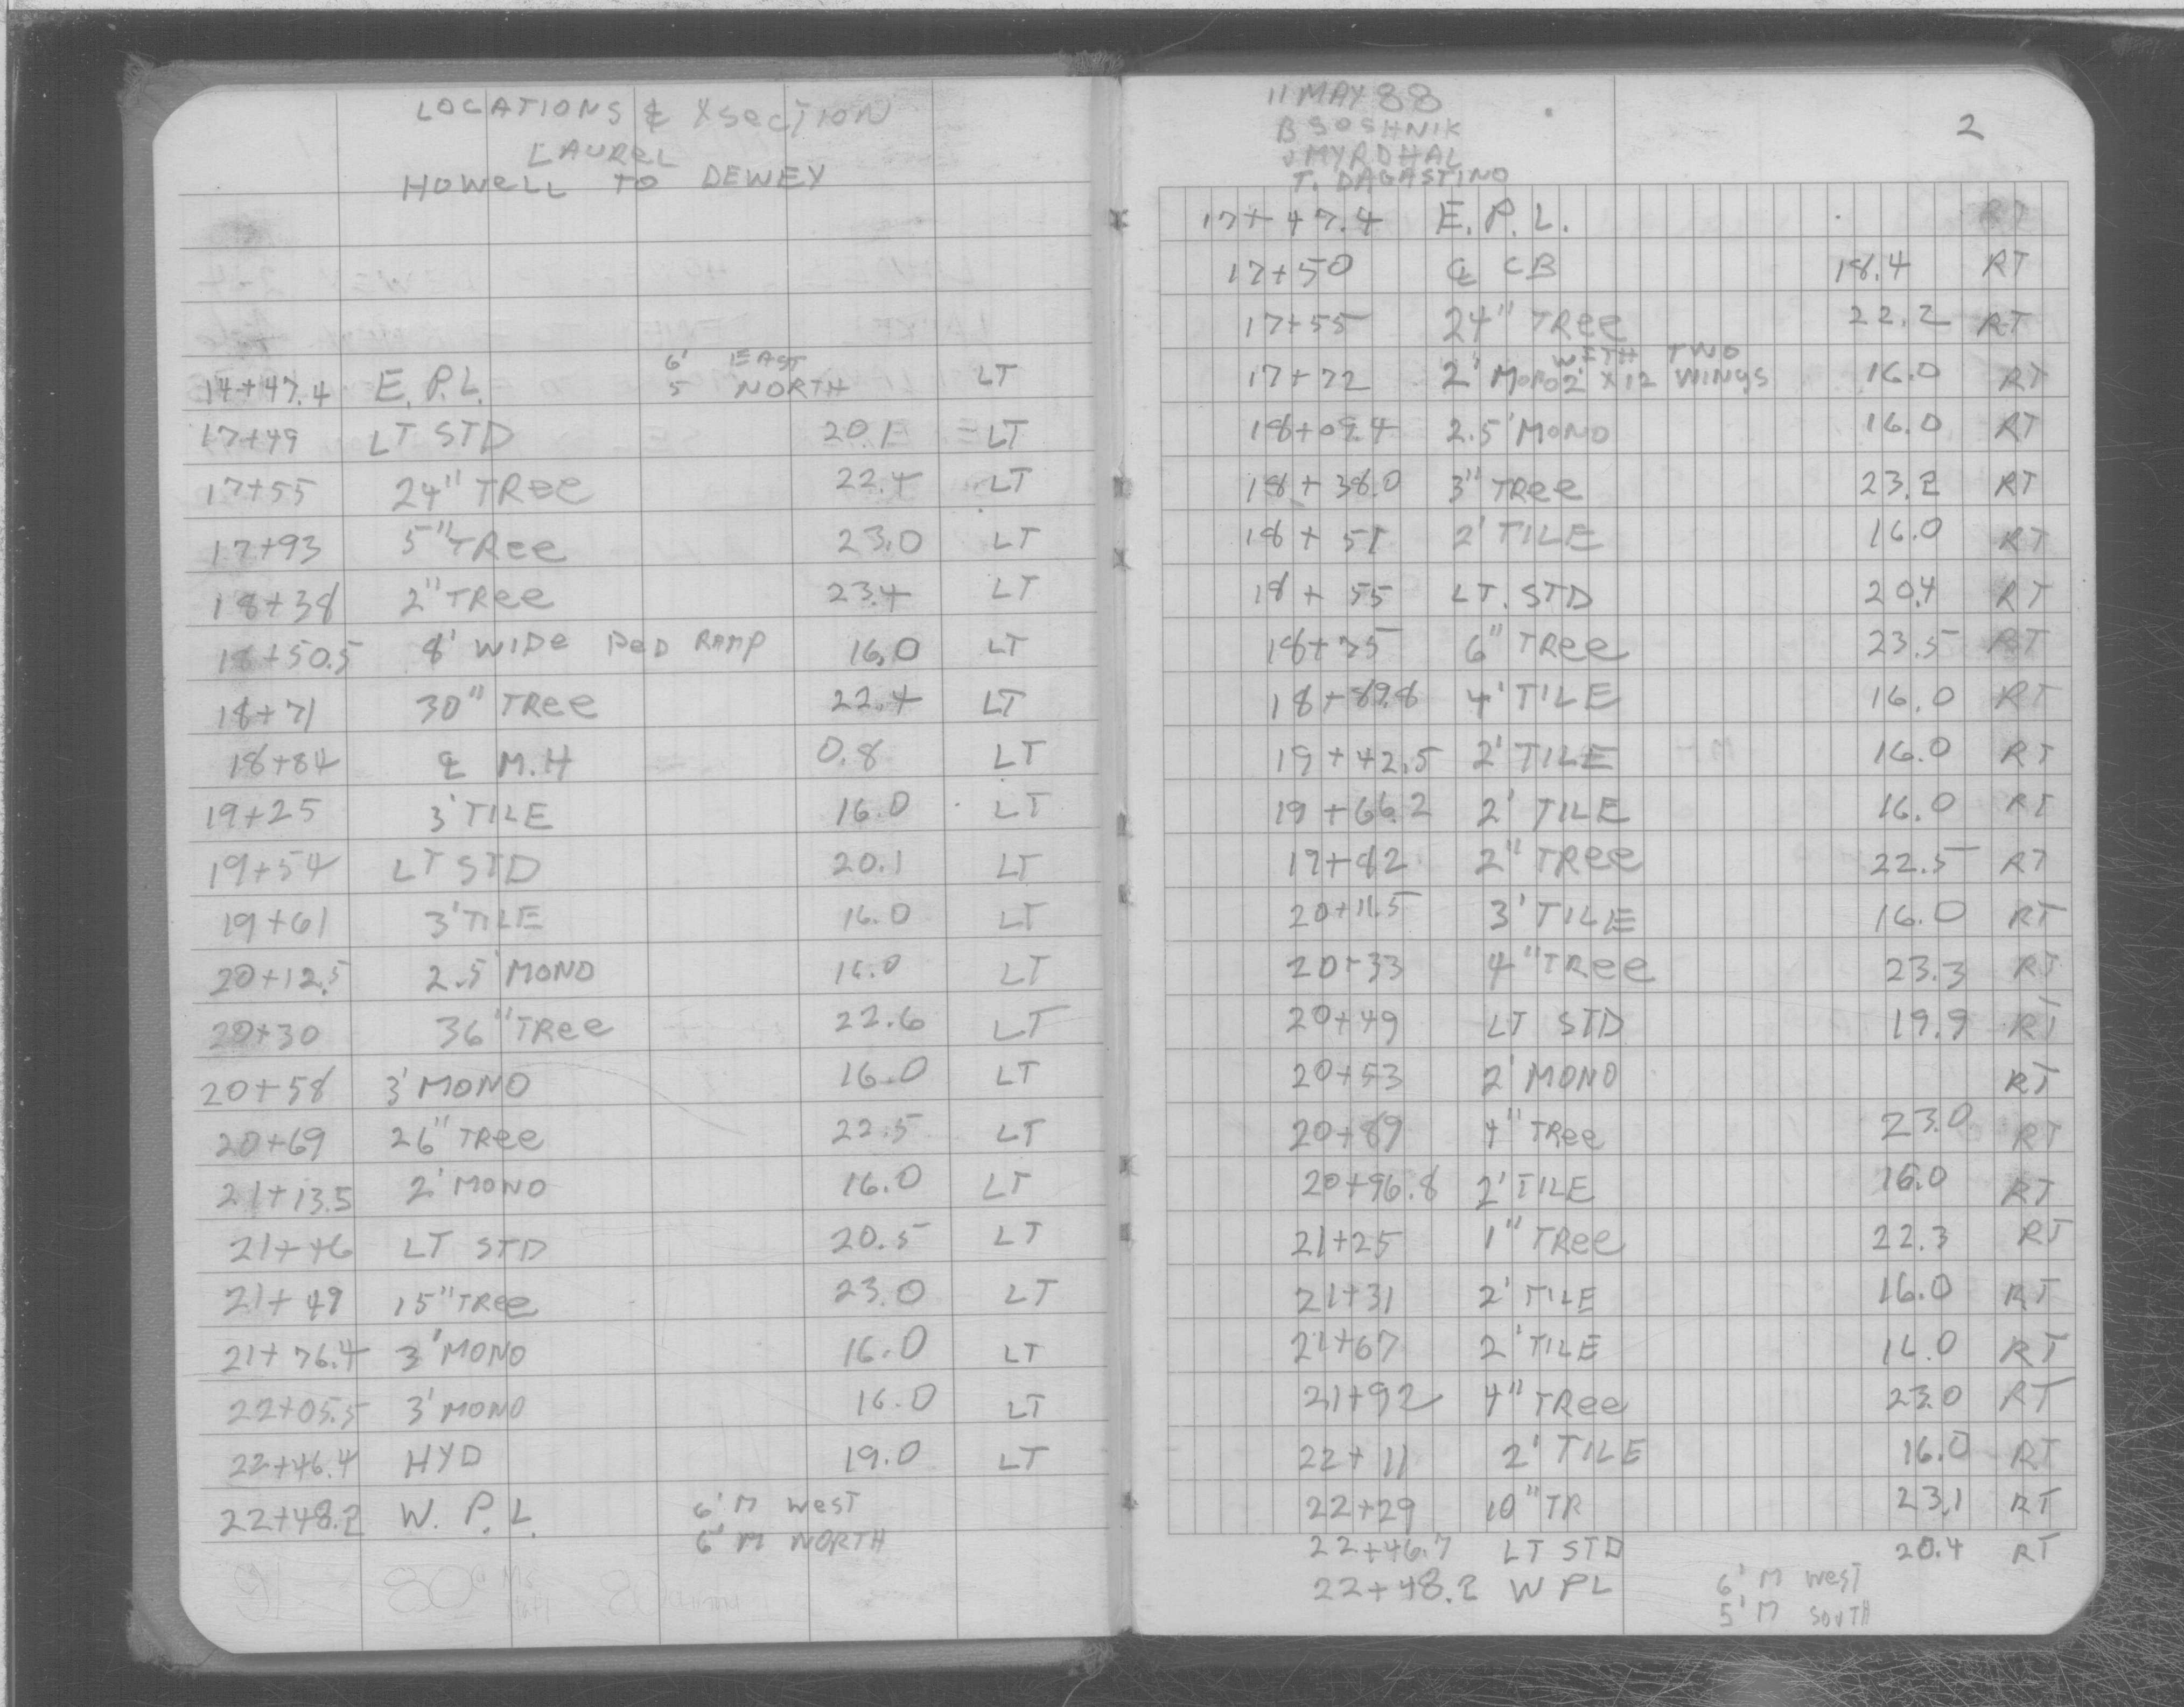 LOCATIONS & XSECTION
LAUREL
HOWELL TO DEWEY
6' EAST
14+47.4 E.P.L. 5 NORTH LT
17+49 LT STD 20.1 LT
17+55 24" TREE 22.4 LT
17+93 5" TREE 23.0 LT
18+38 2" TREE 23.4 LT
18+50.5 8' WIDE PED RAMP 16.0 LT
18+71 30" TREE 22.4 LT
18+84 ℄ M.H 0.8 LT
19+25 3' TILE 16.0 LT
19+54 LT STD 20.1 LT
19+61 3' TILE 16.0 LT
20+12.5 2.5' MONO 16.0 LT
20+30 36" TREE 22.6 LT
20+58 3' MONO 16.0 LT
20+69 26" TREE 22.5 LT
21+13.5 2' MONO 16.0 LT
21+46 LT STD 20.5 LT
21+49 15" TREE 23.0 LT
21+76.4 3' MONO 16.0 LT
22+05.5 3' MONO 16.0 LT
22+46.4 HYD 19.0 LT
22+48.2 W.P.L. 6' M WEST
6' M NORTH
11 MAY 88
B SOSHNIK 2
J MYRDHAL
T. DAGASTINO
17+47.4 E.P.L. RT
17+50 ℄ CB 18.4 RT
17+55 24" TREE 22.2 RT
WITH TWO
17+72 2' MONO 2' X12 WINGS 16.0 RT
18+09.4 2.5' MONO 16.0 RT
18+38.0 3" TREE 23.2 RT
18+51 2' TILE 16.0 RT
18+55 LT. STD 20.4 RT
18+75 6" TREE 23.5 RT
18+89.8 4' TILE 16.0 RT
19+42.5 2' TILE 16.0 RT
19+66.2 2' TILE 16.0 RT
19+82 2" TREE 22.5 RT
20+11.5 3' TILE 16.0 RT
20+33 4" TREE 23.3 RT
20+49 LT STD 19.9 RT
20+53 2' MONO RT
20+89 4" TREE 23.0 RT
20+96.8 2' TILE 16.0 RT
21+25 1" TREE 22.3 RT
21+31 2' TILE 16.0 RT
21+67 2' TILE 16.0 RT
21+92 4" TREE 23.0 RT
22+11 2' TILE 16.0 RT
22+29 10" TR 23.1 RT
22+46.7 LT STD 20.4 RT
22+48.2 W PL 6' M WEST
5' M SOUTH